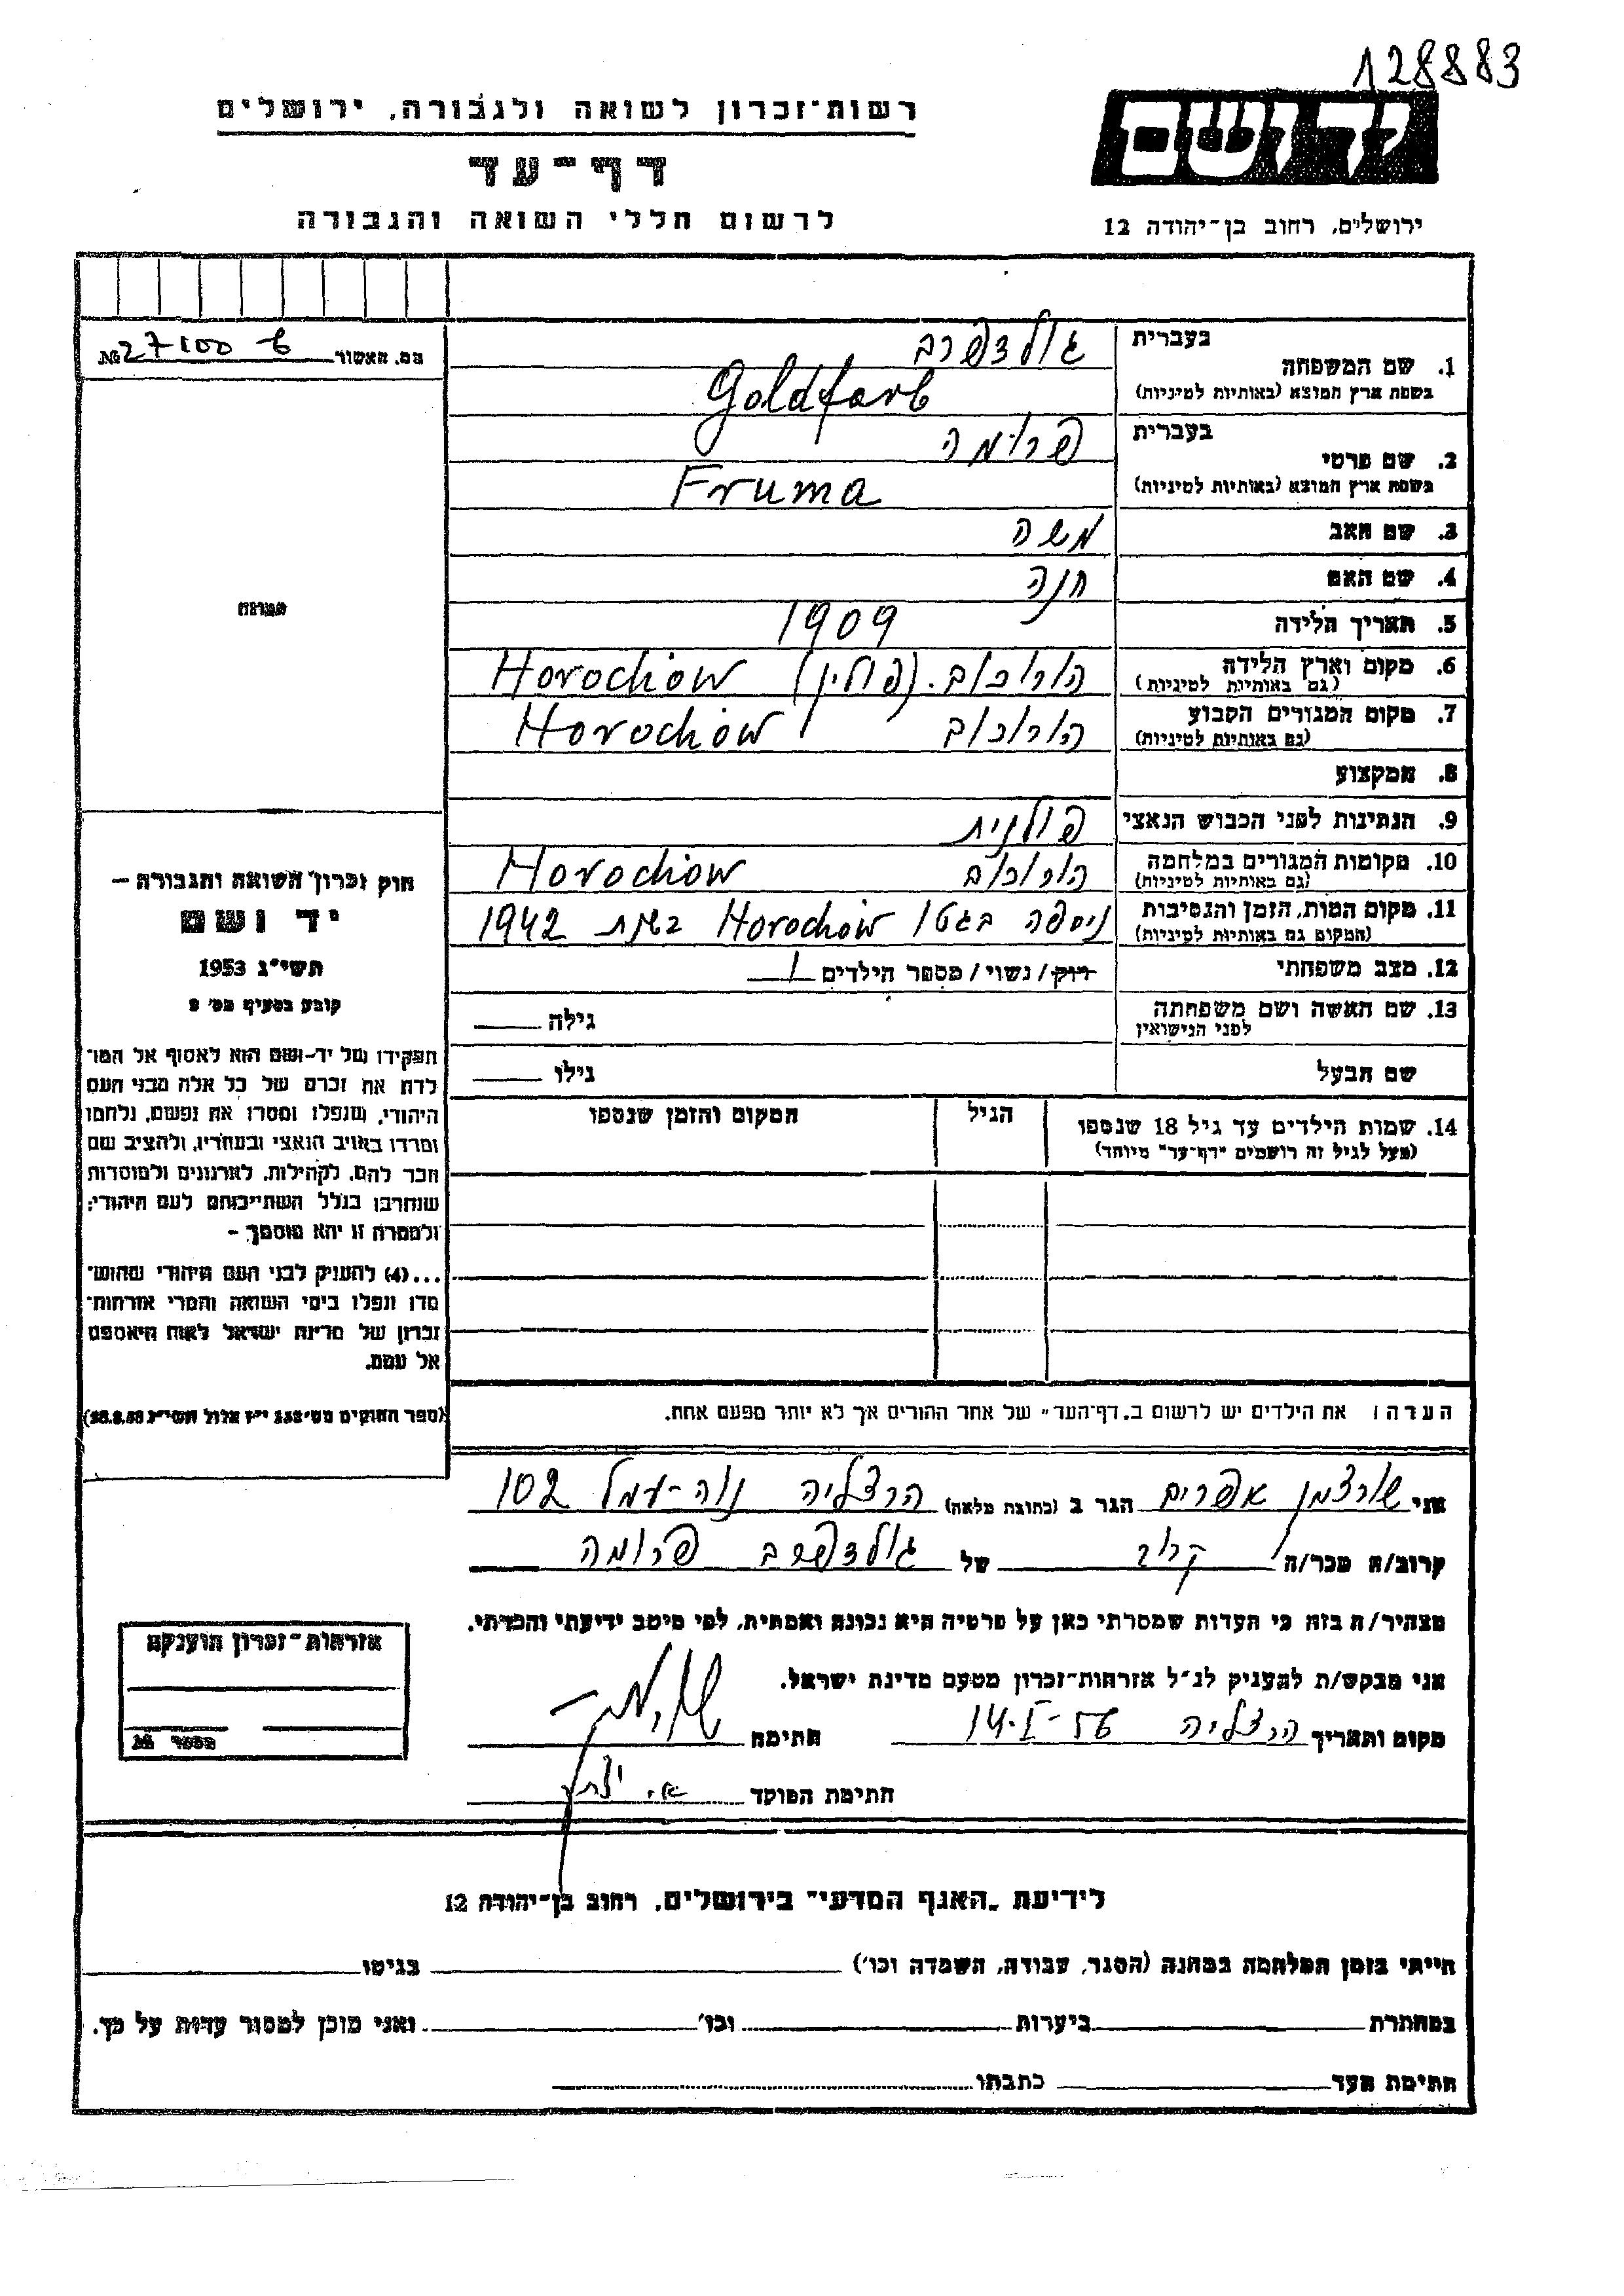 128883
רשות־זכרון לשואה ולגבורה, ירושלים
יד ושם
דף־עד
לרשום חללי השואה והגבורה
ירושלים, רחוב בן־יהודה 12
מס. האשור 27100 №
תמונה
חוק זכרון השואה והגבורה –
יד ושם
תשי"ג 1953
קובע בסעיף מס' 2
תפקידו של יד־ושם הוא לאסוף אל המו־
לדת את זכרם של כל אלה מבני העם
היהודי, שנפלו ומסרו את נפשם, נלחמו
ומרדו באויב הנאצי ובעוזריו, ולהציב שם
וזכר להם, לקהילות, לארגונים ולמוסדות
שנחרבו בגלל השתייכותם לעם היהודי;
ולמטרה זו יהא מוסמך –
...(4) להעניק לבני העם היהודי שהוש־
מדו ונפלו בימי השואה והמרי אזרחות־
זכרון של מדינת ישראל לאות היאספם
אל עמם.
(ספר החוקים מס' 132 י"ז אלול תשי"ג 28.8.53)
1. שם המשפחה בעברית גולדפרב
בשפת ארץ המוצא (באותיות לטיניות) Goldfarb
2. שם פרטי בעברית פרומה
בשפת ארץ המוצא (באותיות לטיניות) Fruma
3. שם האב משה
4. שם האם חנה
5. תאריך הלידה 1909
6. מקום וארץ הלידה (גם באותיות לטיניות) הורוכוב. (פולין) Horochów
7. מקום המגורים הקבוע (גם באותיות לטיניות) הורוכוב Horochów
8. המקצוע
9. הנתינות לפני הכבוש הנאצי פולנית
10. מקומות המגורים במלחמה (גם באותיות לטיניות) הורוכוב Horochów
11. מקום המות, הזמן והנסיבות (המקום גם באותיות לטיניות) ניספה בגטו Horochów בשנת 1942
12. מצב משפחתי רוק/נשוי/מספר הילדים 1
13. שם האשה ושם משפחתה לפני הנישואין גילה
שם הבעל גילו
14. שמות הילדים עד גיל 18 שנספו הגיל המקום והזמן שנספו
(מעל לגיל זה רושמים "דף־עד" מיוחד)
הערה: את הילדים יש לרשום ב"דף־העד" של אחד ההורים אך לא יותר מפעם אחת.
אני שורצמן אפרים הגר ב (כתובת מלאה) הרצליה נוה־עמל 102
קרוב/ה מכר/ה קרוב של גולדפרב פרומה
מצהיר/ה בזה כי העדות שמסרתי כאן על פרטיה היא נכונה ואמתית, לפי מיטב ידיעתי והכרתי.
אני מבקש/ת להעניק לנ"ל אזרחות־זכרון מטעם מדינת ישראל.
מקום ותאריך הרצליה 14.I-56 חתימה
חתימת הפוקד
אזרחות־זכרון הוענקה
מספר №
לידיעת "האגף המדעי" בירושלים, רחוב בן־יהודה 12
חייתי בזמן המלחמה במחנה (הסגר, עבודה, השמדה וכו') בגיטו
במחתרת ביערות וכו' ואני מוכן למסור עדות על כך.
חתימת העד כתבתו